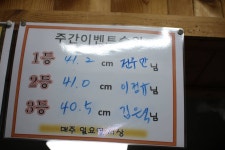 주간이벤트순위
1등 41.2 cm 전우만님
2등 41.0 cm 님
3등 40.5 cm 님
매주 일요일